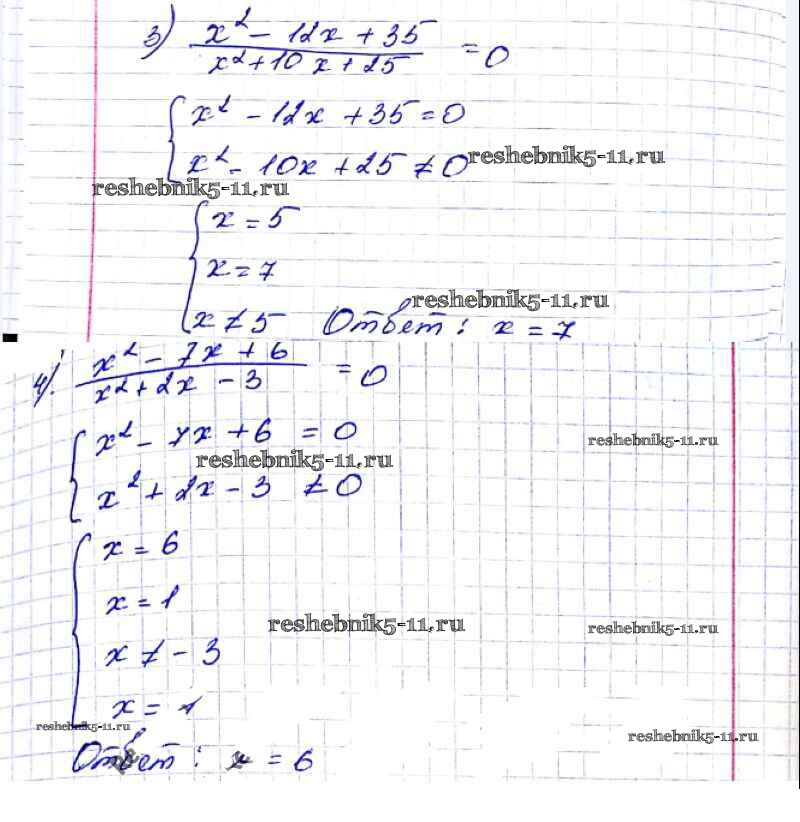 3) x² - 12x + 35 / x² + 10x + 25 = 0
{ x² - 12x + 35 = 0
x² - 10x + 25 ≠ 0 reshebnik5-11.ru
reshebnik5-11.ru
{ x = 5
x = 7
reshebnik5-11.ru
x ≠ 5 Ответ: x = 7
4). x² - 7x + 6 / x² + 2x - 3 = 0
{ x² - 7x + 6 = 0 reshebnik5-11.ru
reshebnik5-11.ru
x² + 2x - 3 ≠ 0
{ x = 6
x = 1
reshebnik5-11.ru reshebnik5-11.ru
x ≠ - 3
x = 1
reshebnik5-11.ru reshebnik5-11.ru
Ответ: x = 6